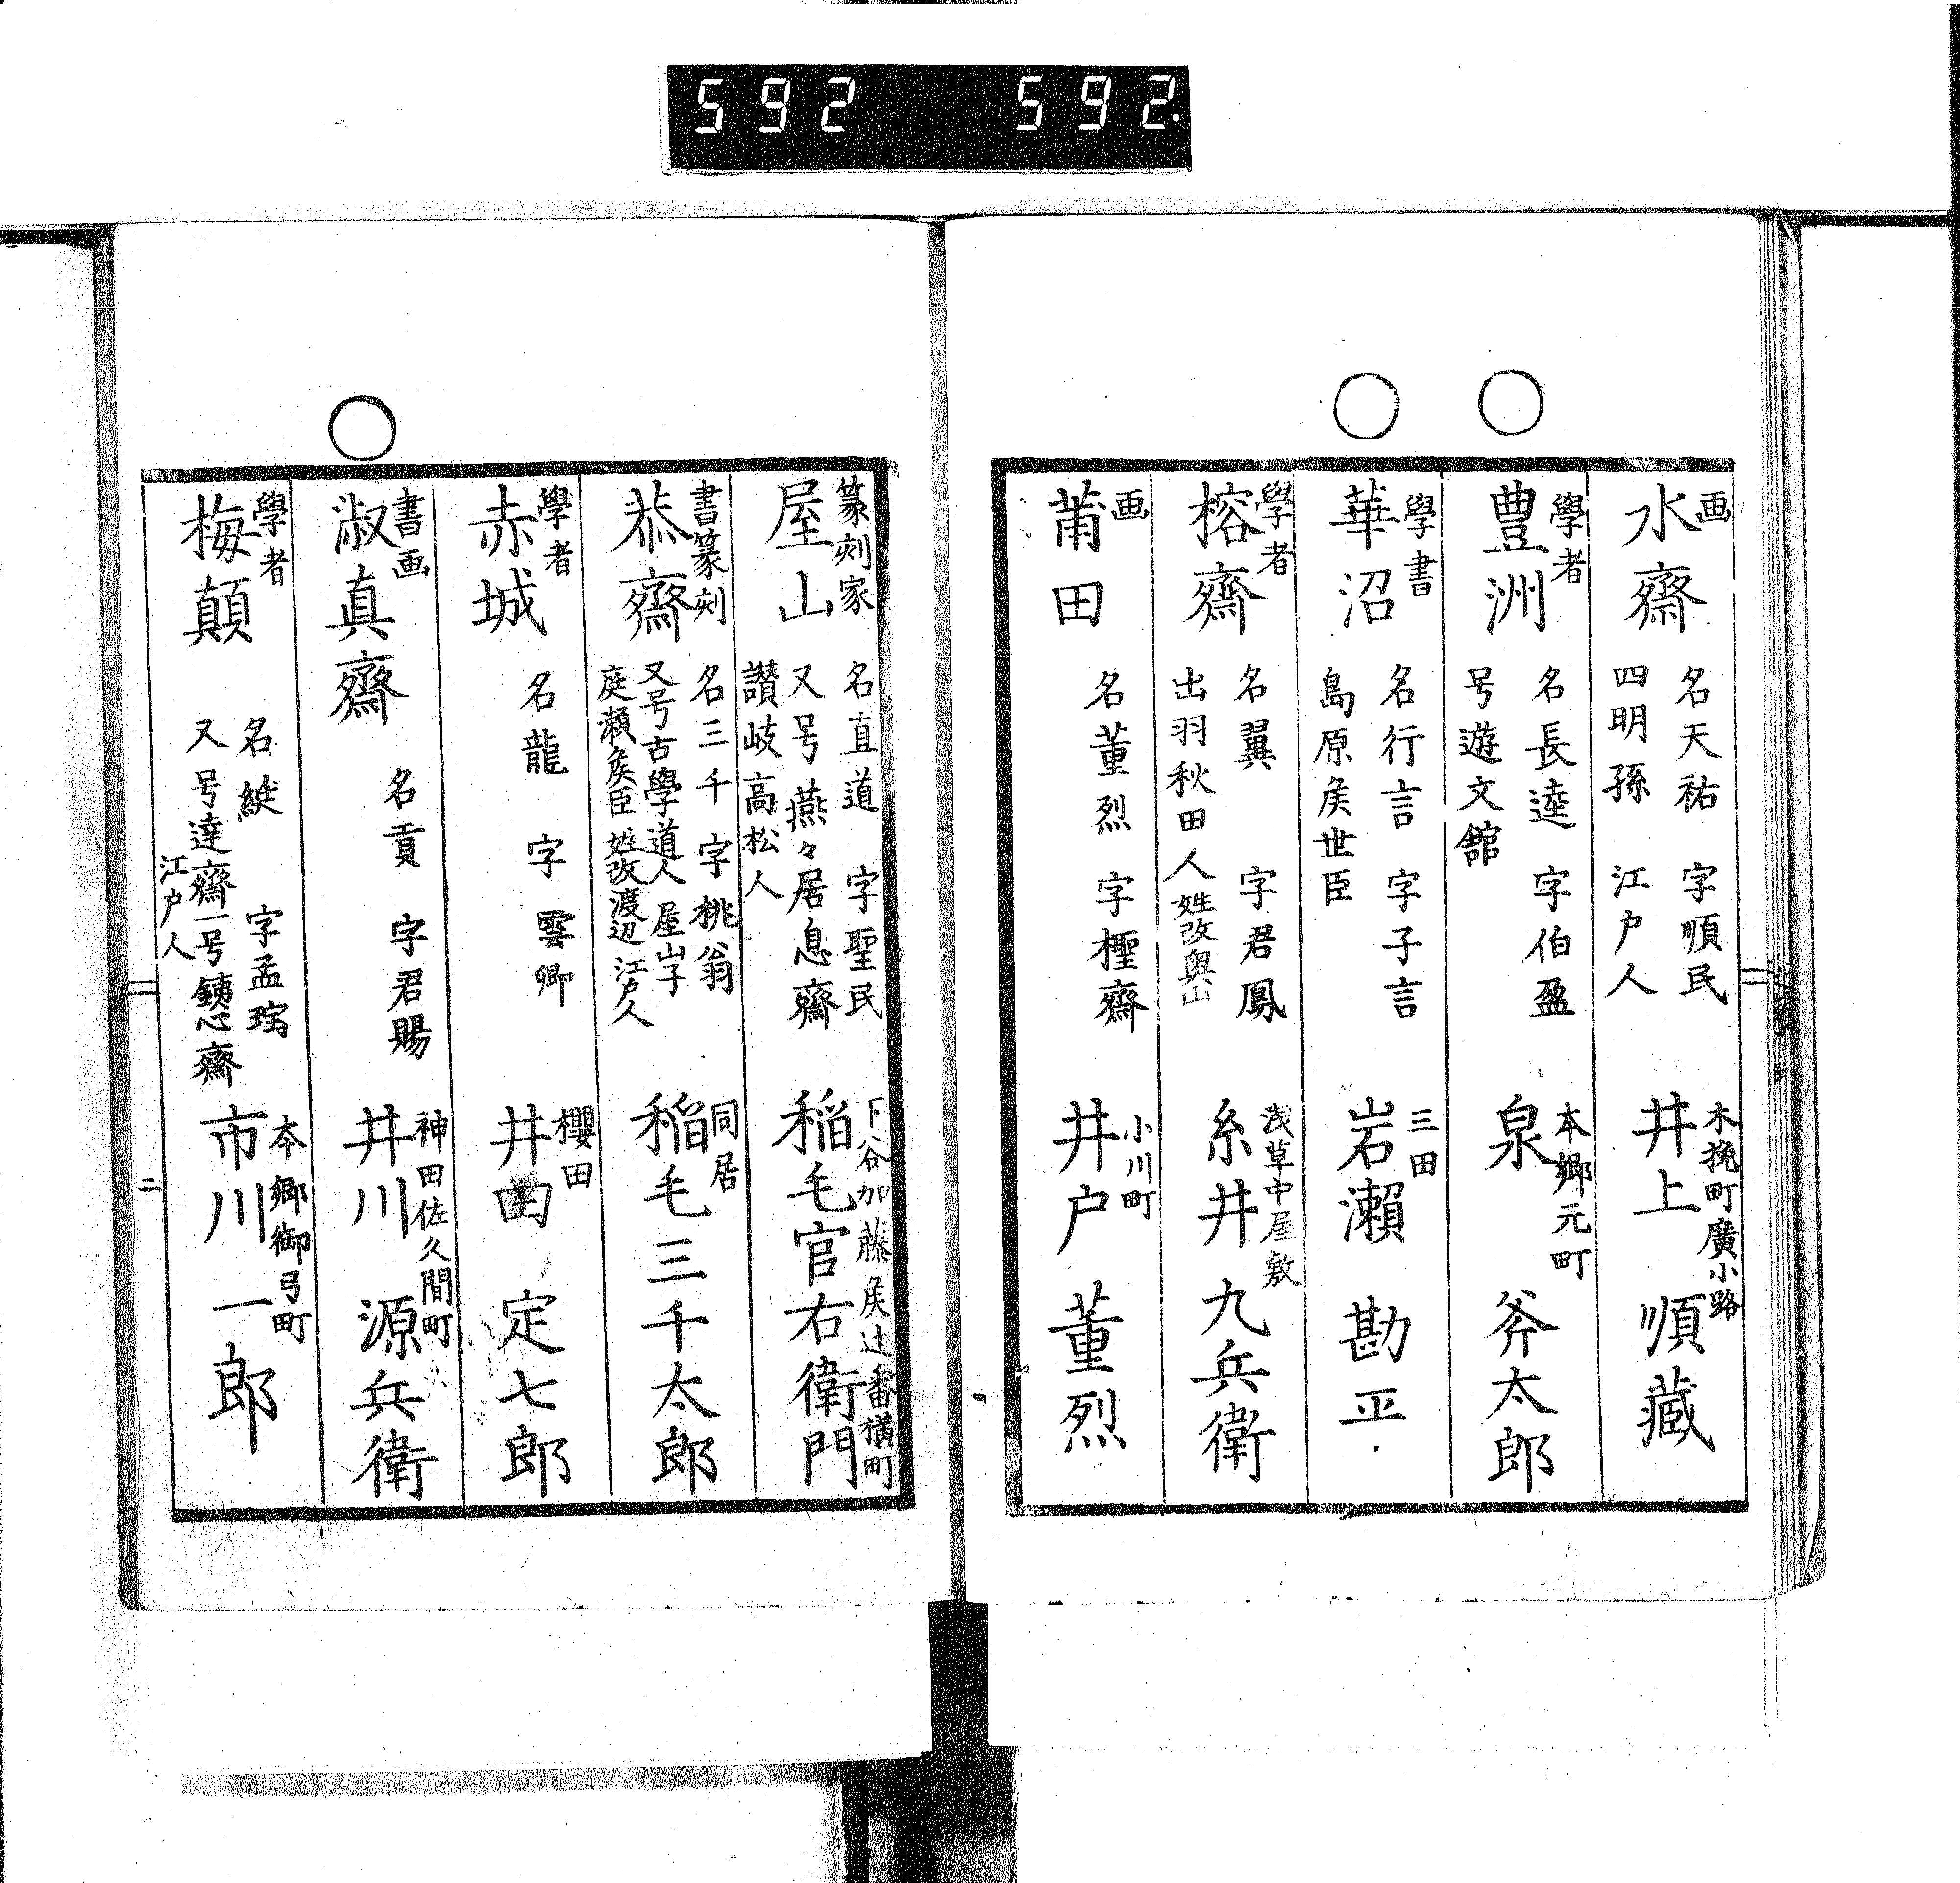 592 592.
画
水齋
名天祐 字順民
四明孫 江户人
木挽町廣小路
井上 順藏
學者
豊洲
名長達 字伯盈
号遊文舘
本郷元町
泉 斧太郎
學書
華沼
名行言 字子言
島原矦世臣
三田
岩瀬 勘平
學者
榕齋
名翼 字君鳳
出羽秋田人姓改奥山
浅草中屋敷
糸井 九兵衛
画
莆田
名董烈 字檉齋
小川町
井户 董烈
篆刻家
屋山
名直道 字聖民
又号燕々居息齋
讃岐高松人
下谷加藤矦辻番横町
稲毛官右衛門
書篆刻
恭齋
名三千 字桃翁
又号古學道人 屋山子
庭瀬矦臣 姓改渡辺 江戸人
同居
稲毛三千太郎
學者
赤城
名龍 字雲卿
櫻田
井田 定七郎
書画
淑真齋
名貢 字君賜
神田佐久間町
井川 源兵衛
學者
梅顛
名 字孟瑤
又号達齋一号銕心齋
江户人
本郷御弓町
市川 一郎
二